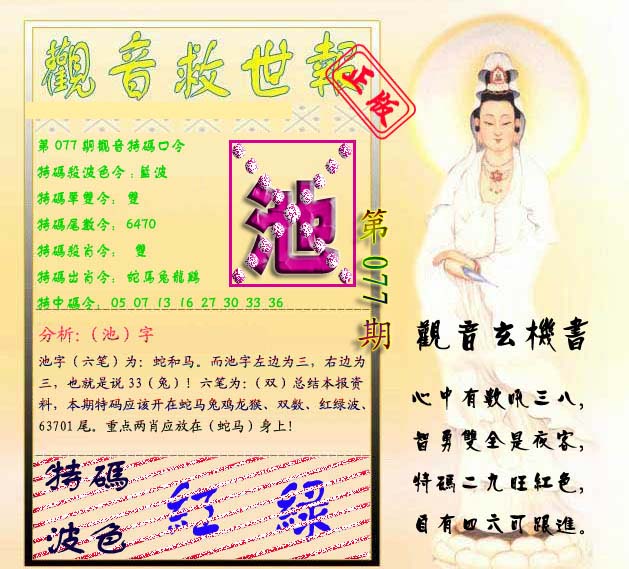 觀音救世報
正版
第077期觀音特碼口令
特碼殺波色令:藍波
特碼單雙令: 雙
特碼尾數令: 6470
特碼殺肖令: 雙
特碼出肖令: 蛇馬兔龍鷄
特中碼令: 05 07 13 16 27 30 33 36
池
第077期
分析:（池）字
池字（六笔）为：蛇和马。而池字左边为三，右边为
三，也就是说 33（兔）！六笔为：（双）总结本报资
料，本期特码应该开在蛇马兔鸡龙猴、双数、红绿波、
63701 尾。重点两肖应放在（蛇马）身上！
特碼
波色
紅 綠
觀音玄機書
心中有數吼三八，
智勇雙全是夜客，
特碼二九旺紅色，
自有四六可跟進。